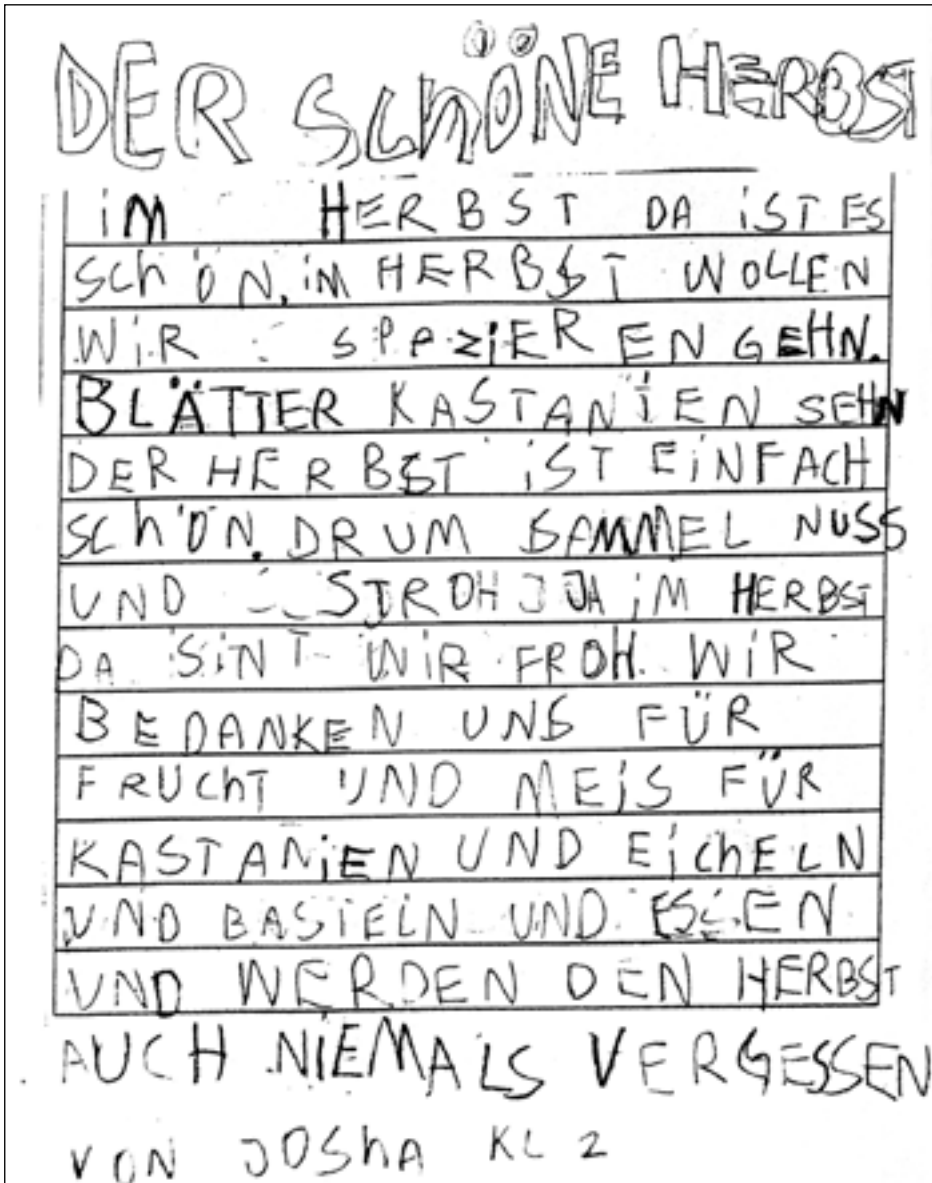 DER SCHÖNE HERBST
iM HERBST DA iST ES
SChÖN. iM HERBST WOLLEN
WiR SPAZiEREN GEHN.
BLÄTTER KASTANiEN SEHN
DER HERBST iST EiNFACH
SChÖN. DRUM SAMMEL NUSS
UND STROH JA iM HERBST
DA SiNT WiR FROH. WiR
BEDANKEN UNS FÜR
FRUChT UND MEiS FÜR
KASTANiEN UND EiChELN
UND BASTELN UND ESSEN
UND WERDEN DEN HERBST
AUCH NiEMALS VERGESSEN
VON JOShA KL 2